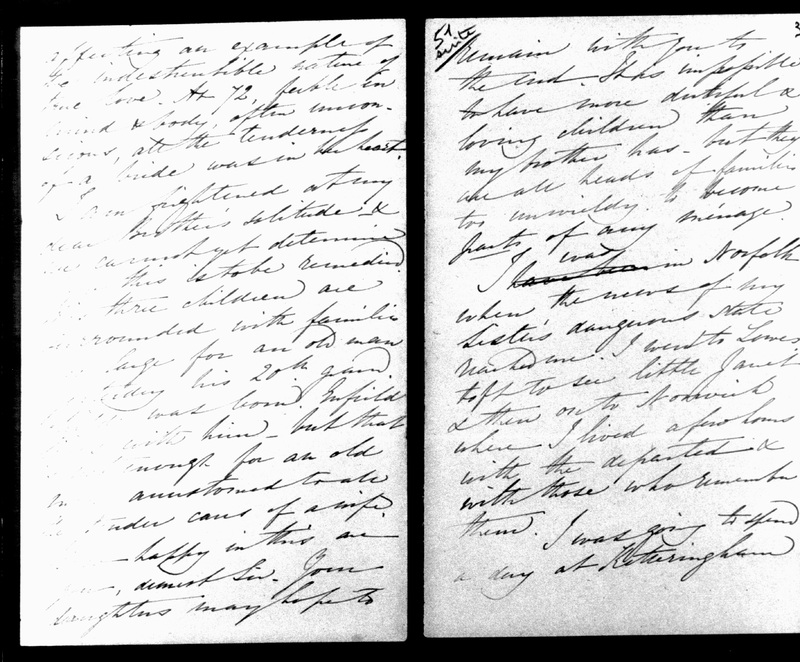 affecting an example of
the indestructible nature of
true love. At 72, feeble in
mind & body, often uncon-
scious, all the tenderness
of a bride was in her heart.
I am frightened at my
dear brother's solitude &
cannot yet determine
this is to be remedied
three children are
surrounded with families
large for an old man
his 20th grand
was born. Enfield
with him - but that
enough for an old
accustomed to all
tender cares of a wife
happy in this are
, dearest Sir. Your
daughters may hope to
51
suite
remain with you to
the end. It is impossible
to have more dutiful &
loving children than
my brother has - but they
are all heads of families
too unwieldy to become
parts of any ménage.
I was
I have been in Norfolk
when the news of my
Sister's dangerous state
reached me. I went to Lowes
toft to see little Janet
& then on to Norwich
where I lived a few hours
with the departed &
with those who remember
them. I was going to spend
a day at Ketteringham
3